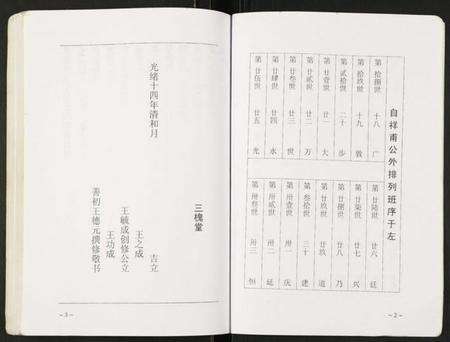 自祥甫公外排列班序于左
第拾捌世 十八 广
第拾玖世 十九 敦
第贰拾世 二十 步
第廿壹世 廿一 大
第廿贰世 廿二 万
第廿叁世 廿三 世
第廿肆世 廿四 水
第廿伍世 廿五 光
第廿陆世 廿六 廷
第廿柒世 廿七 兴
第廿捌世 廿八 乃
第廿玖世 廿玖 道
第叁拾世 三十 建
第卅壹世 卅一 庆
第卅贰世 卅二 延
第卅叁世 卅三 恒
-2-
光绪十四年清和月
三槐堂
王之成 吉立
王毓成创修公立
王功成
善初王德元撰修敬书
-3-